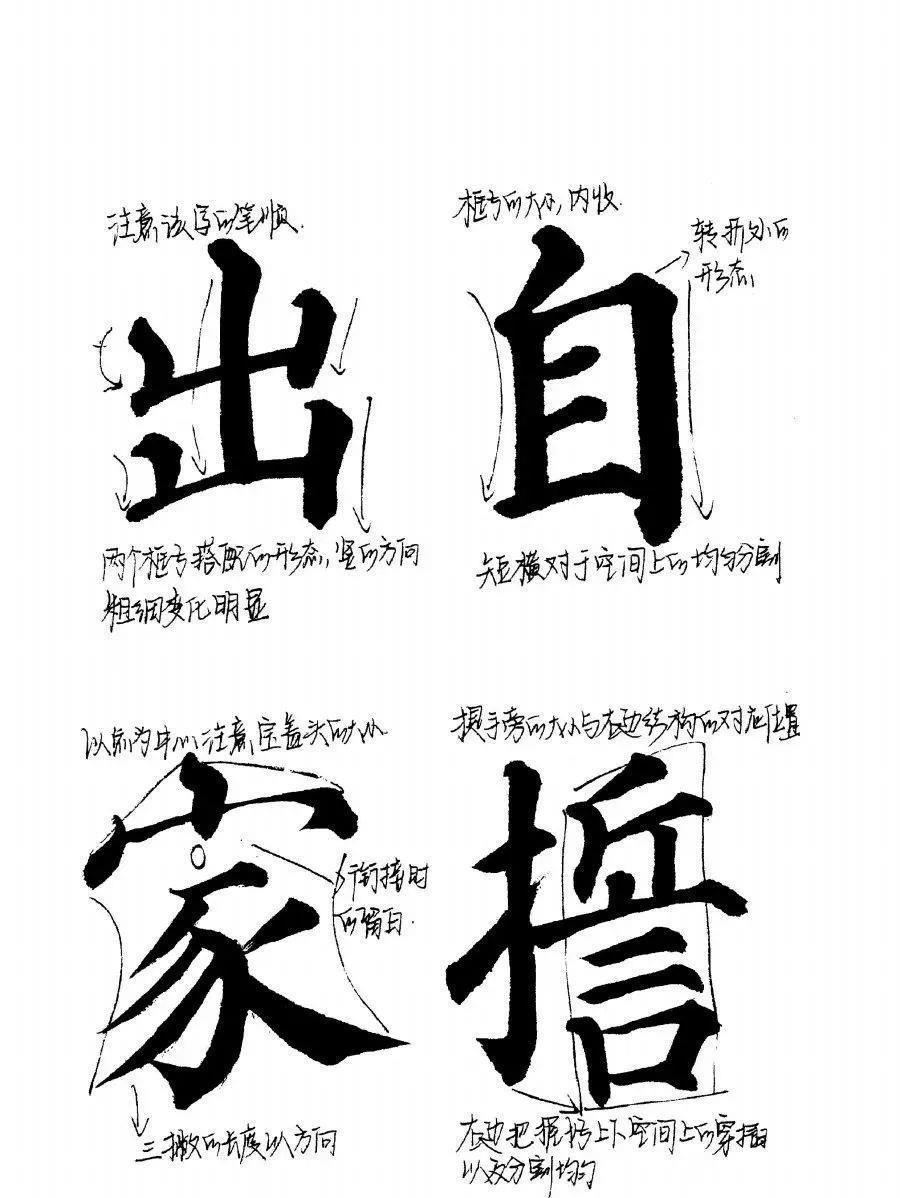 注意该字的笔顺.
出
两个框搭配的形态,竖的方向
粗细变化明显
框的大小,内收.
自
转折处的
形态
短横对于空间上的均匀分割
以点为中心,注意宝盖头的大小
家
衔接时
的留白.
三撇的长度以方向
提手旁的大小与右边结构的对应位置
誓
右边把握好上下空间上的穿插
以及分割均匀